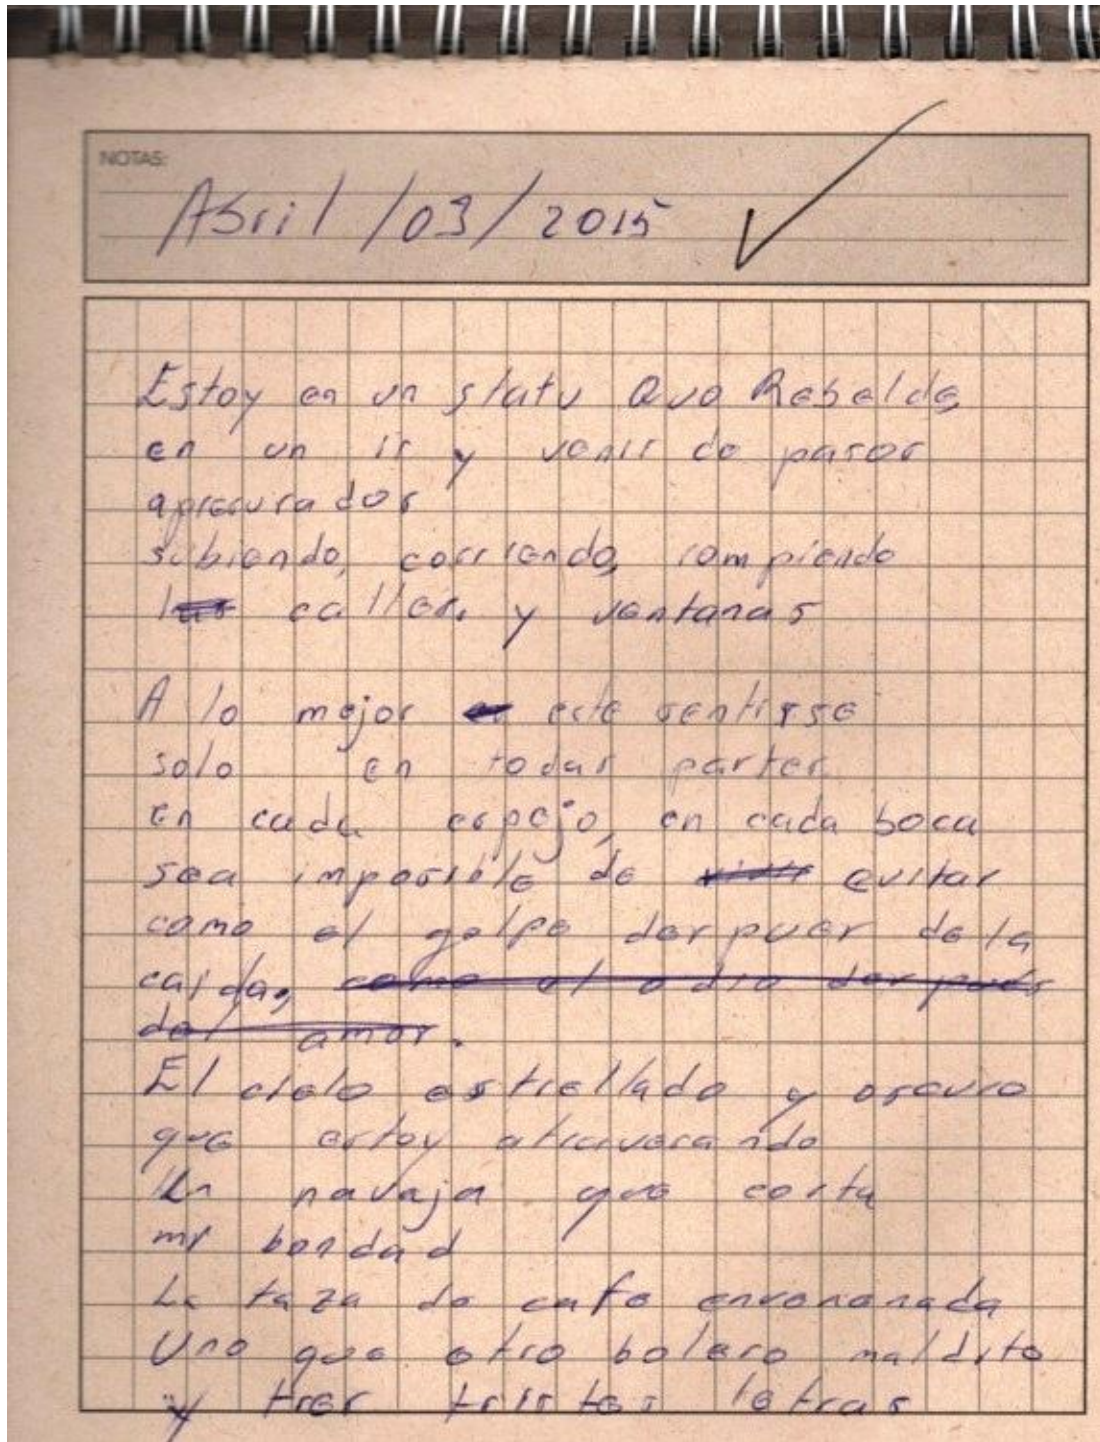 NOTAS:
Abril /03/2015
Estoy en un statu Quo Rebelde,
en un ir y venir de pasos
apresurados
subiendo, corriendo, rompiendo
las calles, y ventanas
A lo mejor este sentirse
solo en todas partes
en cada espejo, en cada boca
sea imposible de vivir evitar
como el golpe despues de la
caida, como el odio despues
del amor.
El cielo estrellado y oscuro
que estoy atravesando
navaja que corta
mi bondad
La taza de cafe envenenada
Uno que otro bolero maldito
y tres tristes letras